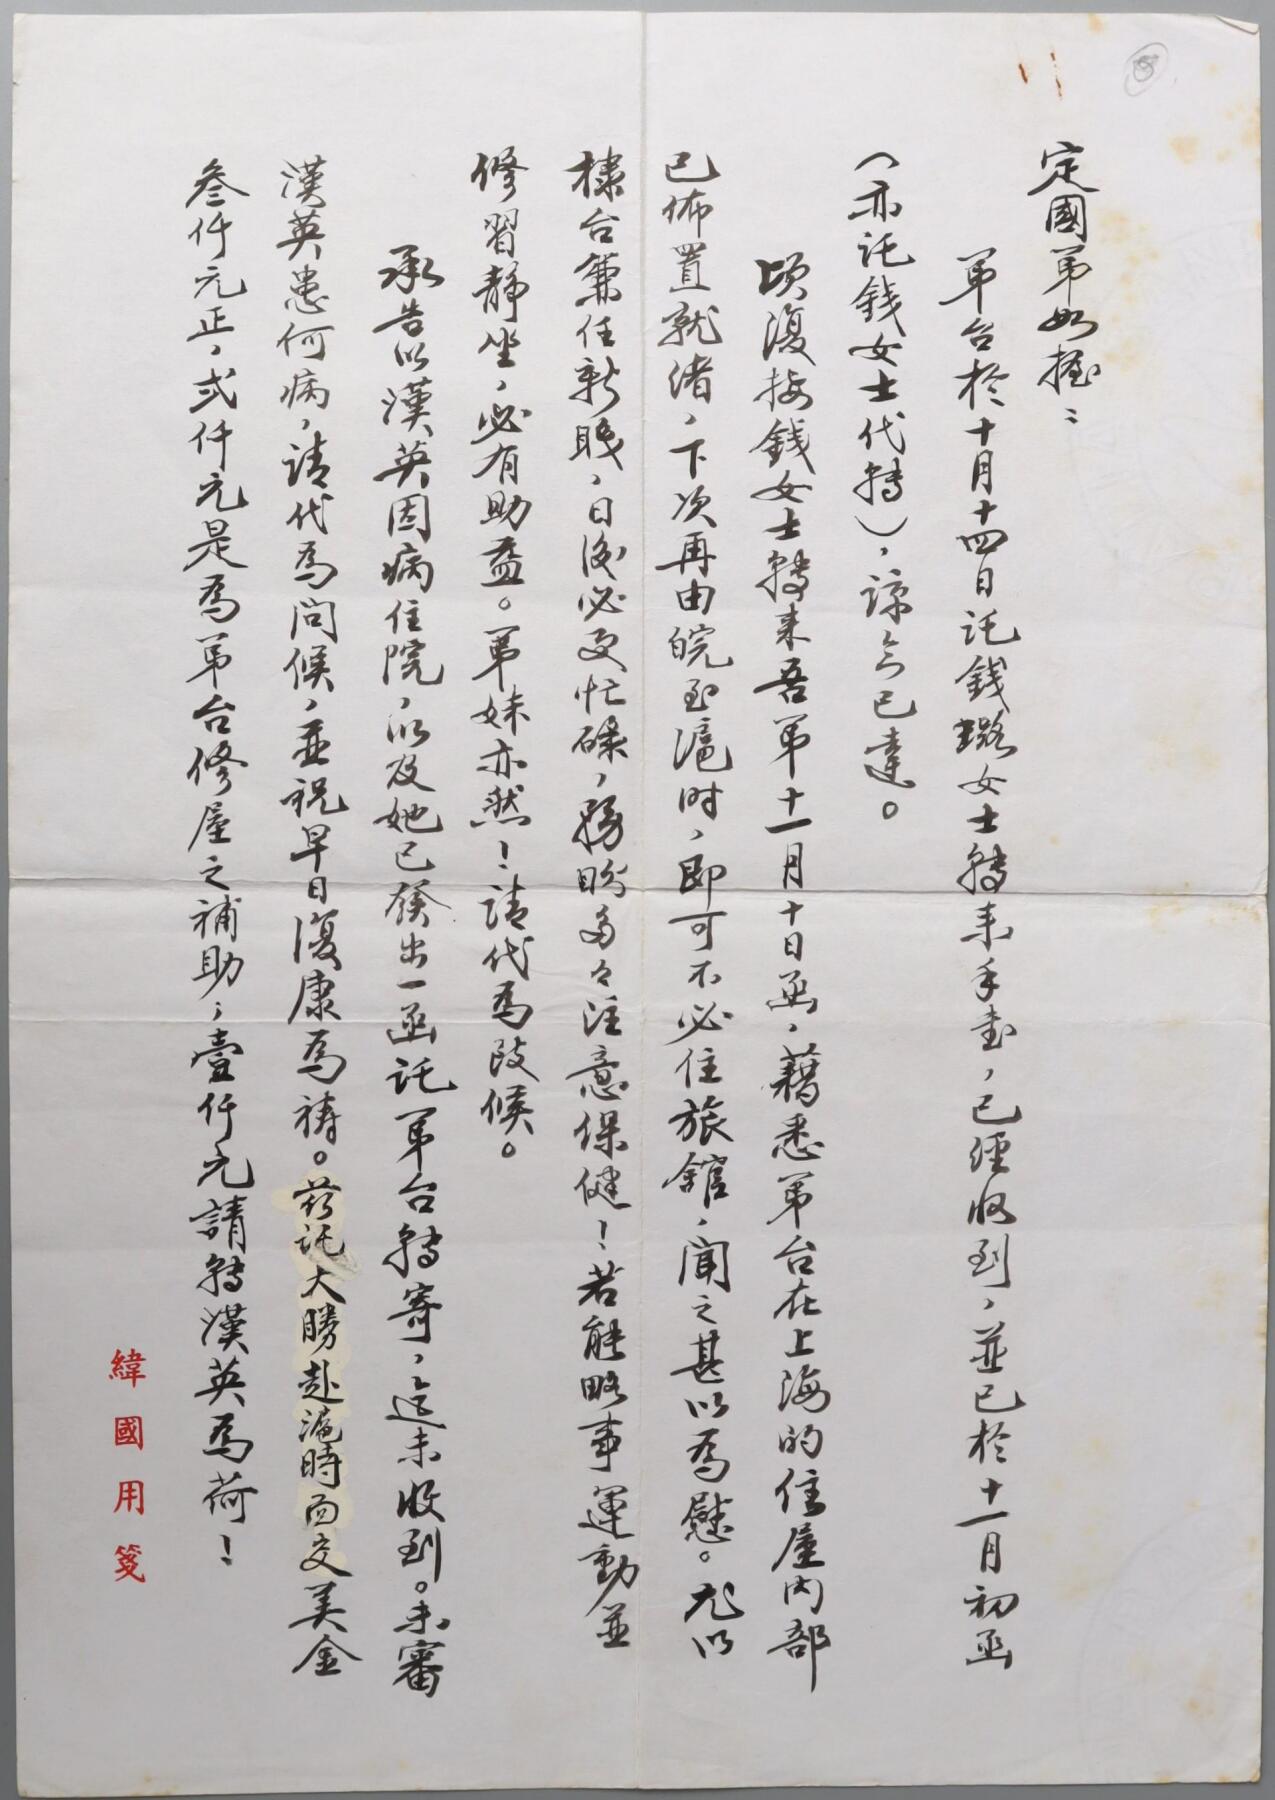 定國弟如握：
弟台於十月十四日託錢璐女士轉來手書，已經收到，並已於十一月初函
（亦託錢女士代轉），諒今已達。
頃復接錢女士轉來吾弟十一月十日函，藉悉弟台在上海的住屋內部
已佈置就緒，下次再由皖至滬时，即可不必住旅館，聞之甚以為慰。尤以
棣台兼任新職，日後必更忙碌，務盼多々注意保健！若能略事運動並
修習靜坐，必有助益。弟妹亦然！請代為致候。
承告以漢英因病住院，以及她已發出一函託弟台轉寄，迄未收到。未審
漢英患何病，請代為問候，並祝早日復康為禱。茲託大勝赴滬時面交美金
叁仟元正，弍仟元是為弟台修屋之補助；壹仟元請轉漢英為荷！
緯國用箋